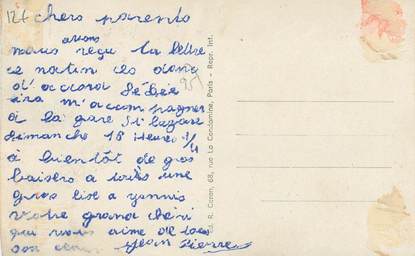 chers parents
avons
nous reçu la lettre
ce matin ces donc
d'accord Dédée
ira m'accompagner
à la gare St lazare
dimanche 18 Heures 1/4
à bientôt de gros
baisers a toute une
gros bise a yannis
votre grand chéri
qui vous aime de tous
son Jean Pierre
Ed. R. Caron, 68, rue La Condamine, Paris - Repr. Int.